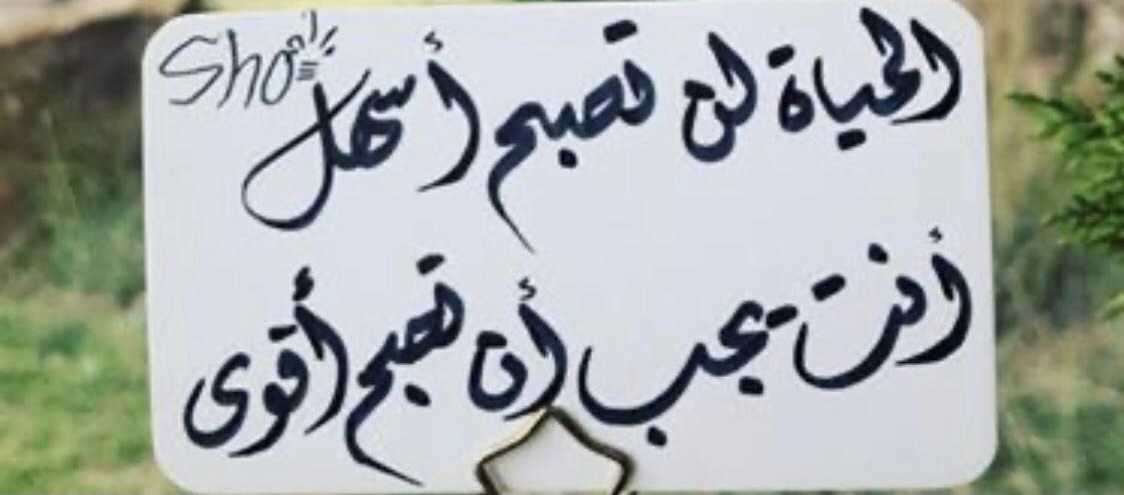 الحياة لن تصبح أسهل
أنت يجب أن تصبح أقوى